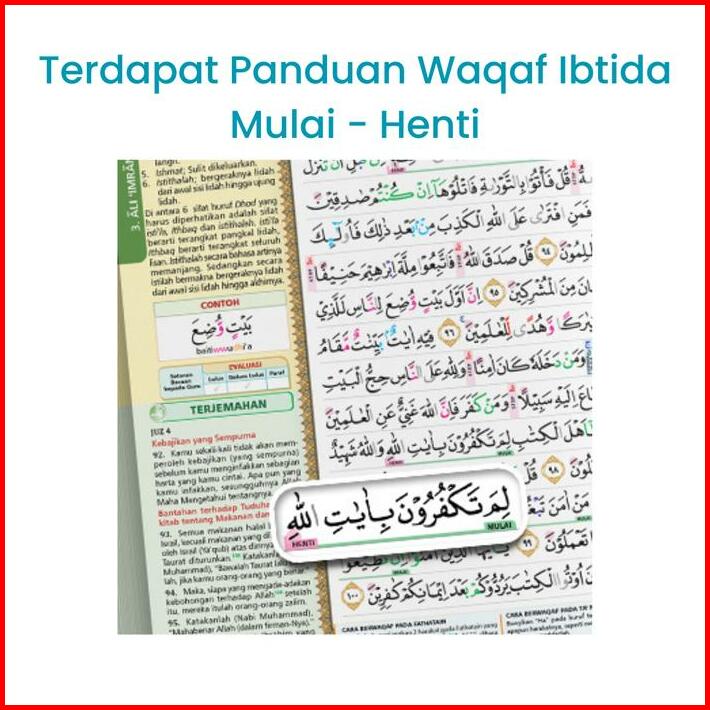 Terdapat Panduan Waqaf Ibtida
Mulai - Henti
3. ĀLI 'IMRĀN
5. Ishmat; Sulit dikeluarkan.
6. Istithalah; bergeraknya lidah
dari awal sisi lidah hingga ujung
lidah.
Di antara 6 sifat huruf Dhod yang
harus diperhatikan adalah sifat
isti'la, ithbaq dan istithalah, isti'la
berarti terangkat pangkal lidah,
ithbaq berarti terangkat seluruh
lisan. Istithalah secara bahasa artinya
memanjang. Sedangkan secara
istilah bermakna bergeraknya lidah
dari awal sisi lidah hingga akhirnya.
CONTOH
بَيْتٍ وُّضِعَ
baitiwwudhi'a
EVALUASI
Setoran Bacaan kepada Guru
Lulus
Belum Lulus
Paraf
TERJEMAHAN
JUZ 4
Kebajikan yang Sempurna
92. Kamu sekali-kali tidak akan mem-
peroleh kebajikan (yang sempurna)
sebelum kamu menginfakkan sebagian
harta yang kamu cintai. Apa pun yang
kamu infakkan, sesungguhnya Allah
Maha Mengetahui tentangnya.
Bantahan terhadap
kitab tentang Makanan
93. Semua makanan halal
Israil, kecuali makanan yang
oleh Israil (Ya'qub) atas dirinya
Taurat diturunkan. Katakanlah
Muhammad), "Bawalah Taurat lalu
lah, jika kamu orang-orang yang benar
94. Maka, siapa yang mengada-adakan
kebohongan terhadap Allah setelah
itu, mereka itulah orang-orang zalim.
95. Katakanlah (Nabi Muhammad),
"Mahabenar Allah (dalam firman-Nya).
قُلْ فَأْتُوْا بِالتَّوْرٰىةِ فَاتْلُوْهَآ اِنْ كُنْتُمْ صٰدِقِيْنَ
فَمَنِ افْتَرٰى عَلَى اللّٰهِ الْكَذِبَ مِنْۢ بَعْدِ ذٰلِكَ فَاُولٰۤىِٕكَ
٩٤ قُلْ صَدَقَ اللّٰهُ فَاتَّبِعُوْا مِلَّةَ اِبْرٰهِيْمَ حَنِيْفًا
مِنَ الْمُشْرِكِيْنَ ٩٥ اِنَّ اَوَّلَ بَيْتٍ وُّضِعَ لِلنَّاسِ لَلَّذِيْ
وَّهُدًى لِّلْعٰلَمِيْنَ ٩٦ فِيْهِ اٰيٰتٌۢ بَيِّنٰتٌ مَّقَامُ
وَمَنْ دَخَلَهٗ كَانَ اٰمِنًا وَلِلّٰهِ عَلَى النَّاسِ حِجُّ الْبَيْتِ
اِلَيْهِ سَبِيْلًا وَمَنْ كَفَرَ فَاِنَّ اللّٰهَ غَنِيٌّ عَنِ الْعٰلَمِيْنَ
اَهْلَ الْكِتٰبِ لِمَ تَكْفُرُوْنَ بِاٰيٰتِ اللّٰهِ وَاللّٰهُ شَهِيْدٌ
MULAI
٩٨
لِمَ تَكْفُرُوْنَ بِاٰيٰتِ اللّٰهِ
HENTI
MULAI
مَنْ اٰمَنَ
تَعْمَلُوْنَ ٩٩
اُوْتُوا الْكِتٰبَ يَرُدُّوْكُمْ بَعْدَ اِيْمَانِكُمْ كٰفِرِيْنَ ١٠٠
CARA BERWAQAF PADA FATHATAIN